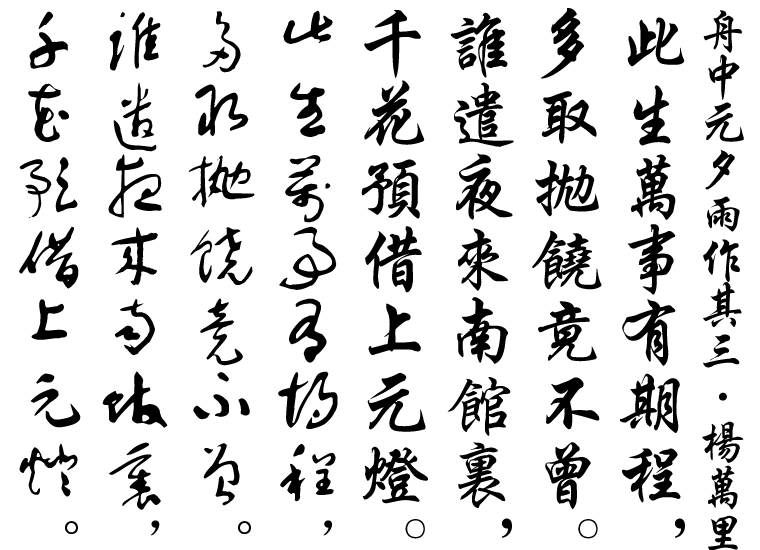 舟中元夕雨作其三・楊萬里
此生萬事有期程，
多取拋饒竟不曾。
誰遣夜來南館裏，
千花預借上元燈。
此生萬事有期程，
多取拋饒竟不曾。
誰遣夜來南館裏，
千花預借上元燈。